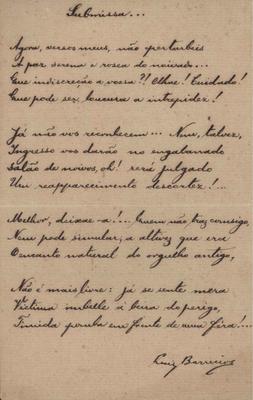 Submissa...
Agora, versos meus, não perturbeis
A paz serena e rosea do noivado...
Que indiscreção a vossa?! Olhae! Cuidado!
Que pode ser loucura a intrepidez!
Já não vos reconhecem... Nem, talvez,
Ingresso vos darão no engalanado
Salão de noivos, oh! será julgado
Um reapparecimento descortez!...
Melhor, deixae-a!... Quem não traz comsigo,
Nem pode simular, a altivez que era
Oencanto natural do orgulho antigo,
Não é mais livre: já se sente mera
Victima imbelle á beira do perigo,
Timida pomba em fonte de uma féra!...
Luiz